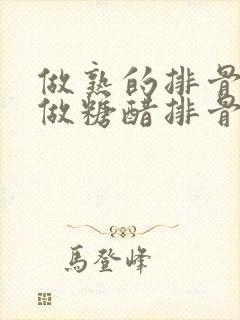 做熟的排骨
做糖醋排骨
馬登峰